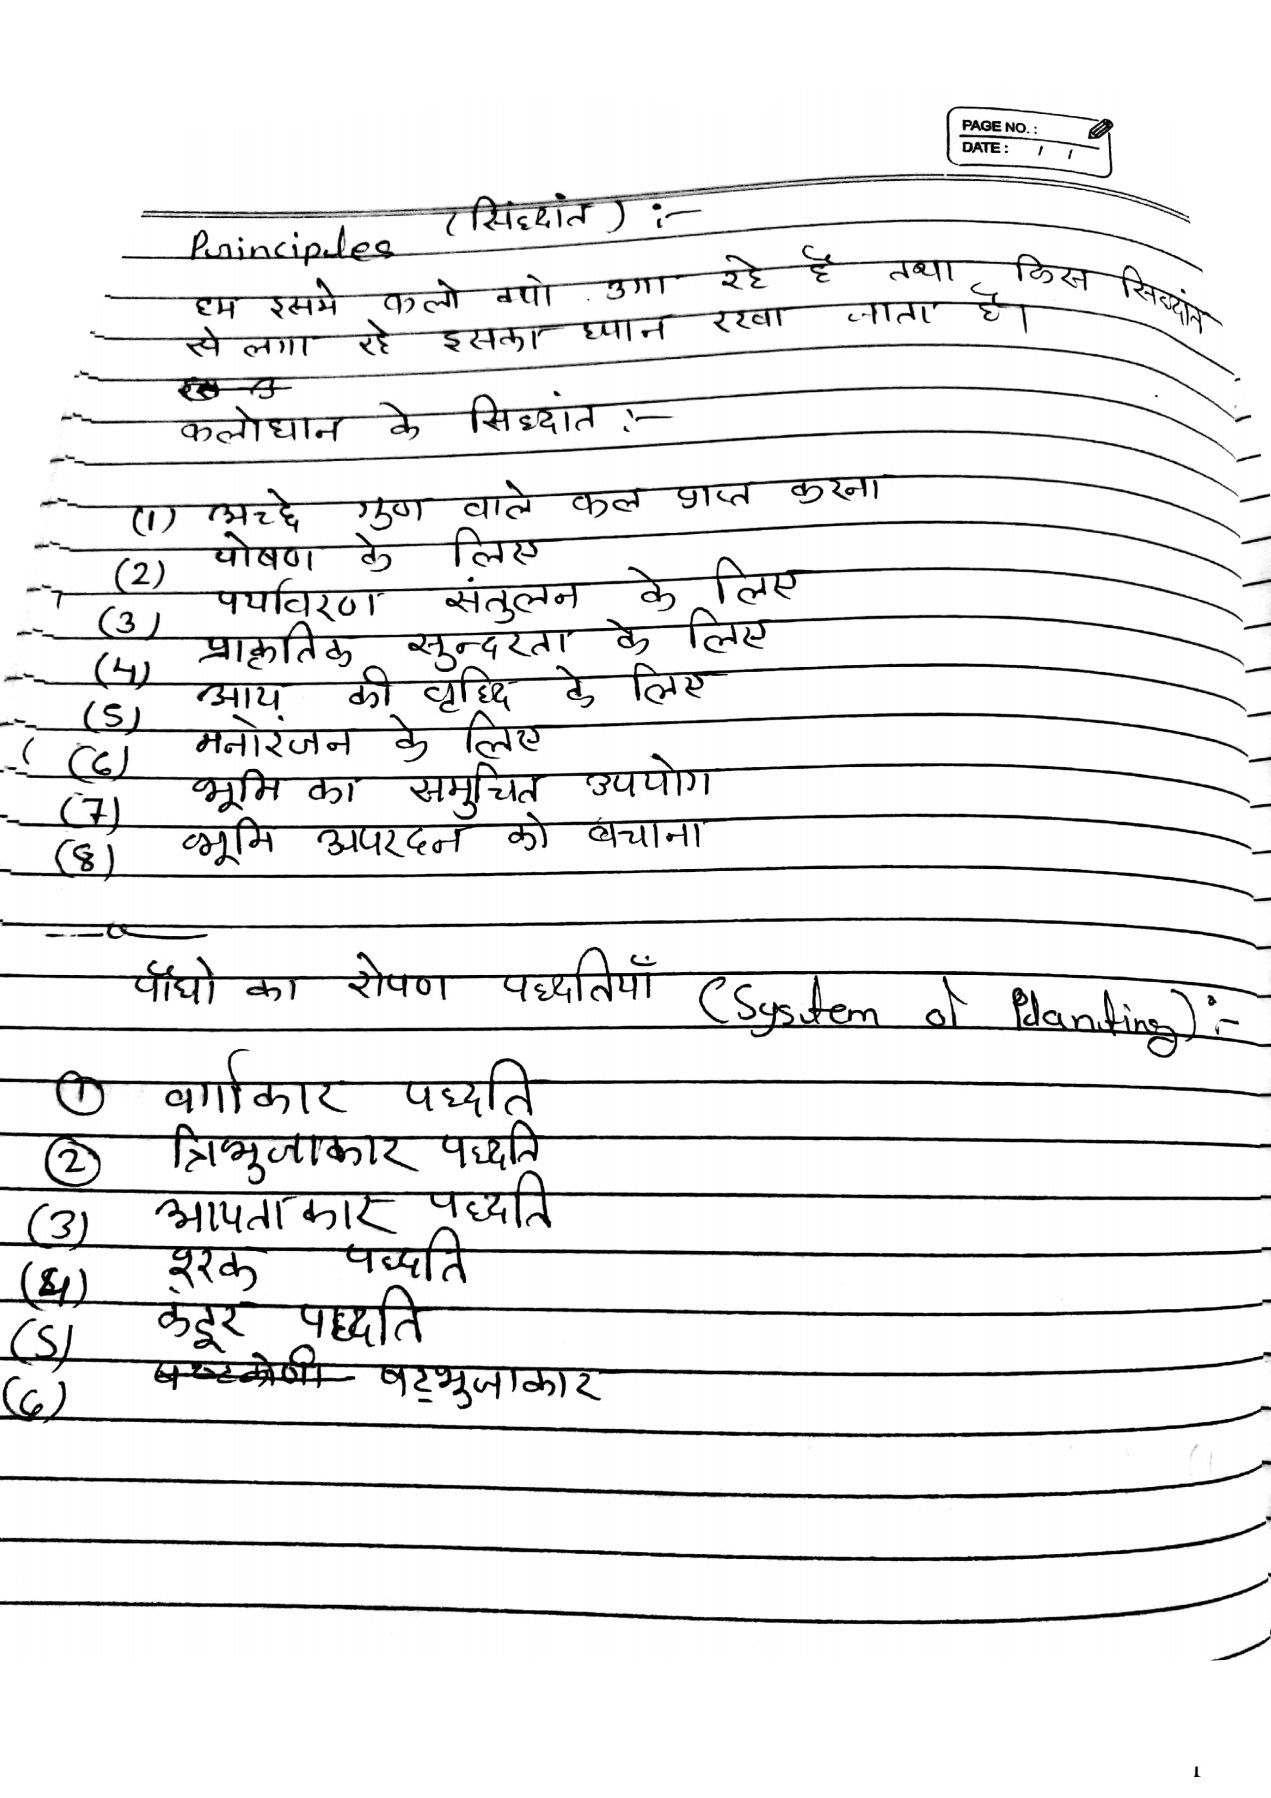 PAGE NO. :
DATE : / /
Principles (सिध्दांत) :-
हम इसमे फलो क्यो उगा रहे है तथा किस सिध्दांत
से लगा रहे इसका ध्यान रखा जाता है।
फलोधान के सिध्दांत :-
(1) अच्छे गुण वाले फल प्राप्त करना
(2) पोषण के लिए
(3) पर्यावरण संतुलन के लिए
(4) प्राकृतिक सुन्दरता के लिए
(5) आय की वृध्दि के लिए
(6) मनोरंजन के लिए
(7) भूमि का समुचित उपयोग
(8) भूमि अपरदन को बचाना
पौंधो का रोपण पध्दतियाँ (System of Planting) :-
① वर्गाकार पध्दति
② त्रिभुजाकार पध्दति
(3) आयताकार पध्दति
(4) पूरक पध्दति
(5) कंटूर पध्दति
(6) षट्भुजाकार
1